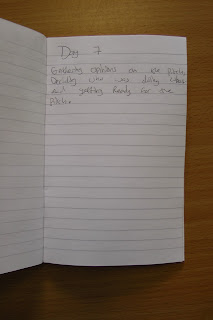 Day 7
Gathering opinions on the Pitch,
Deciding who was doing what
and getting Ready for the
Pitch.